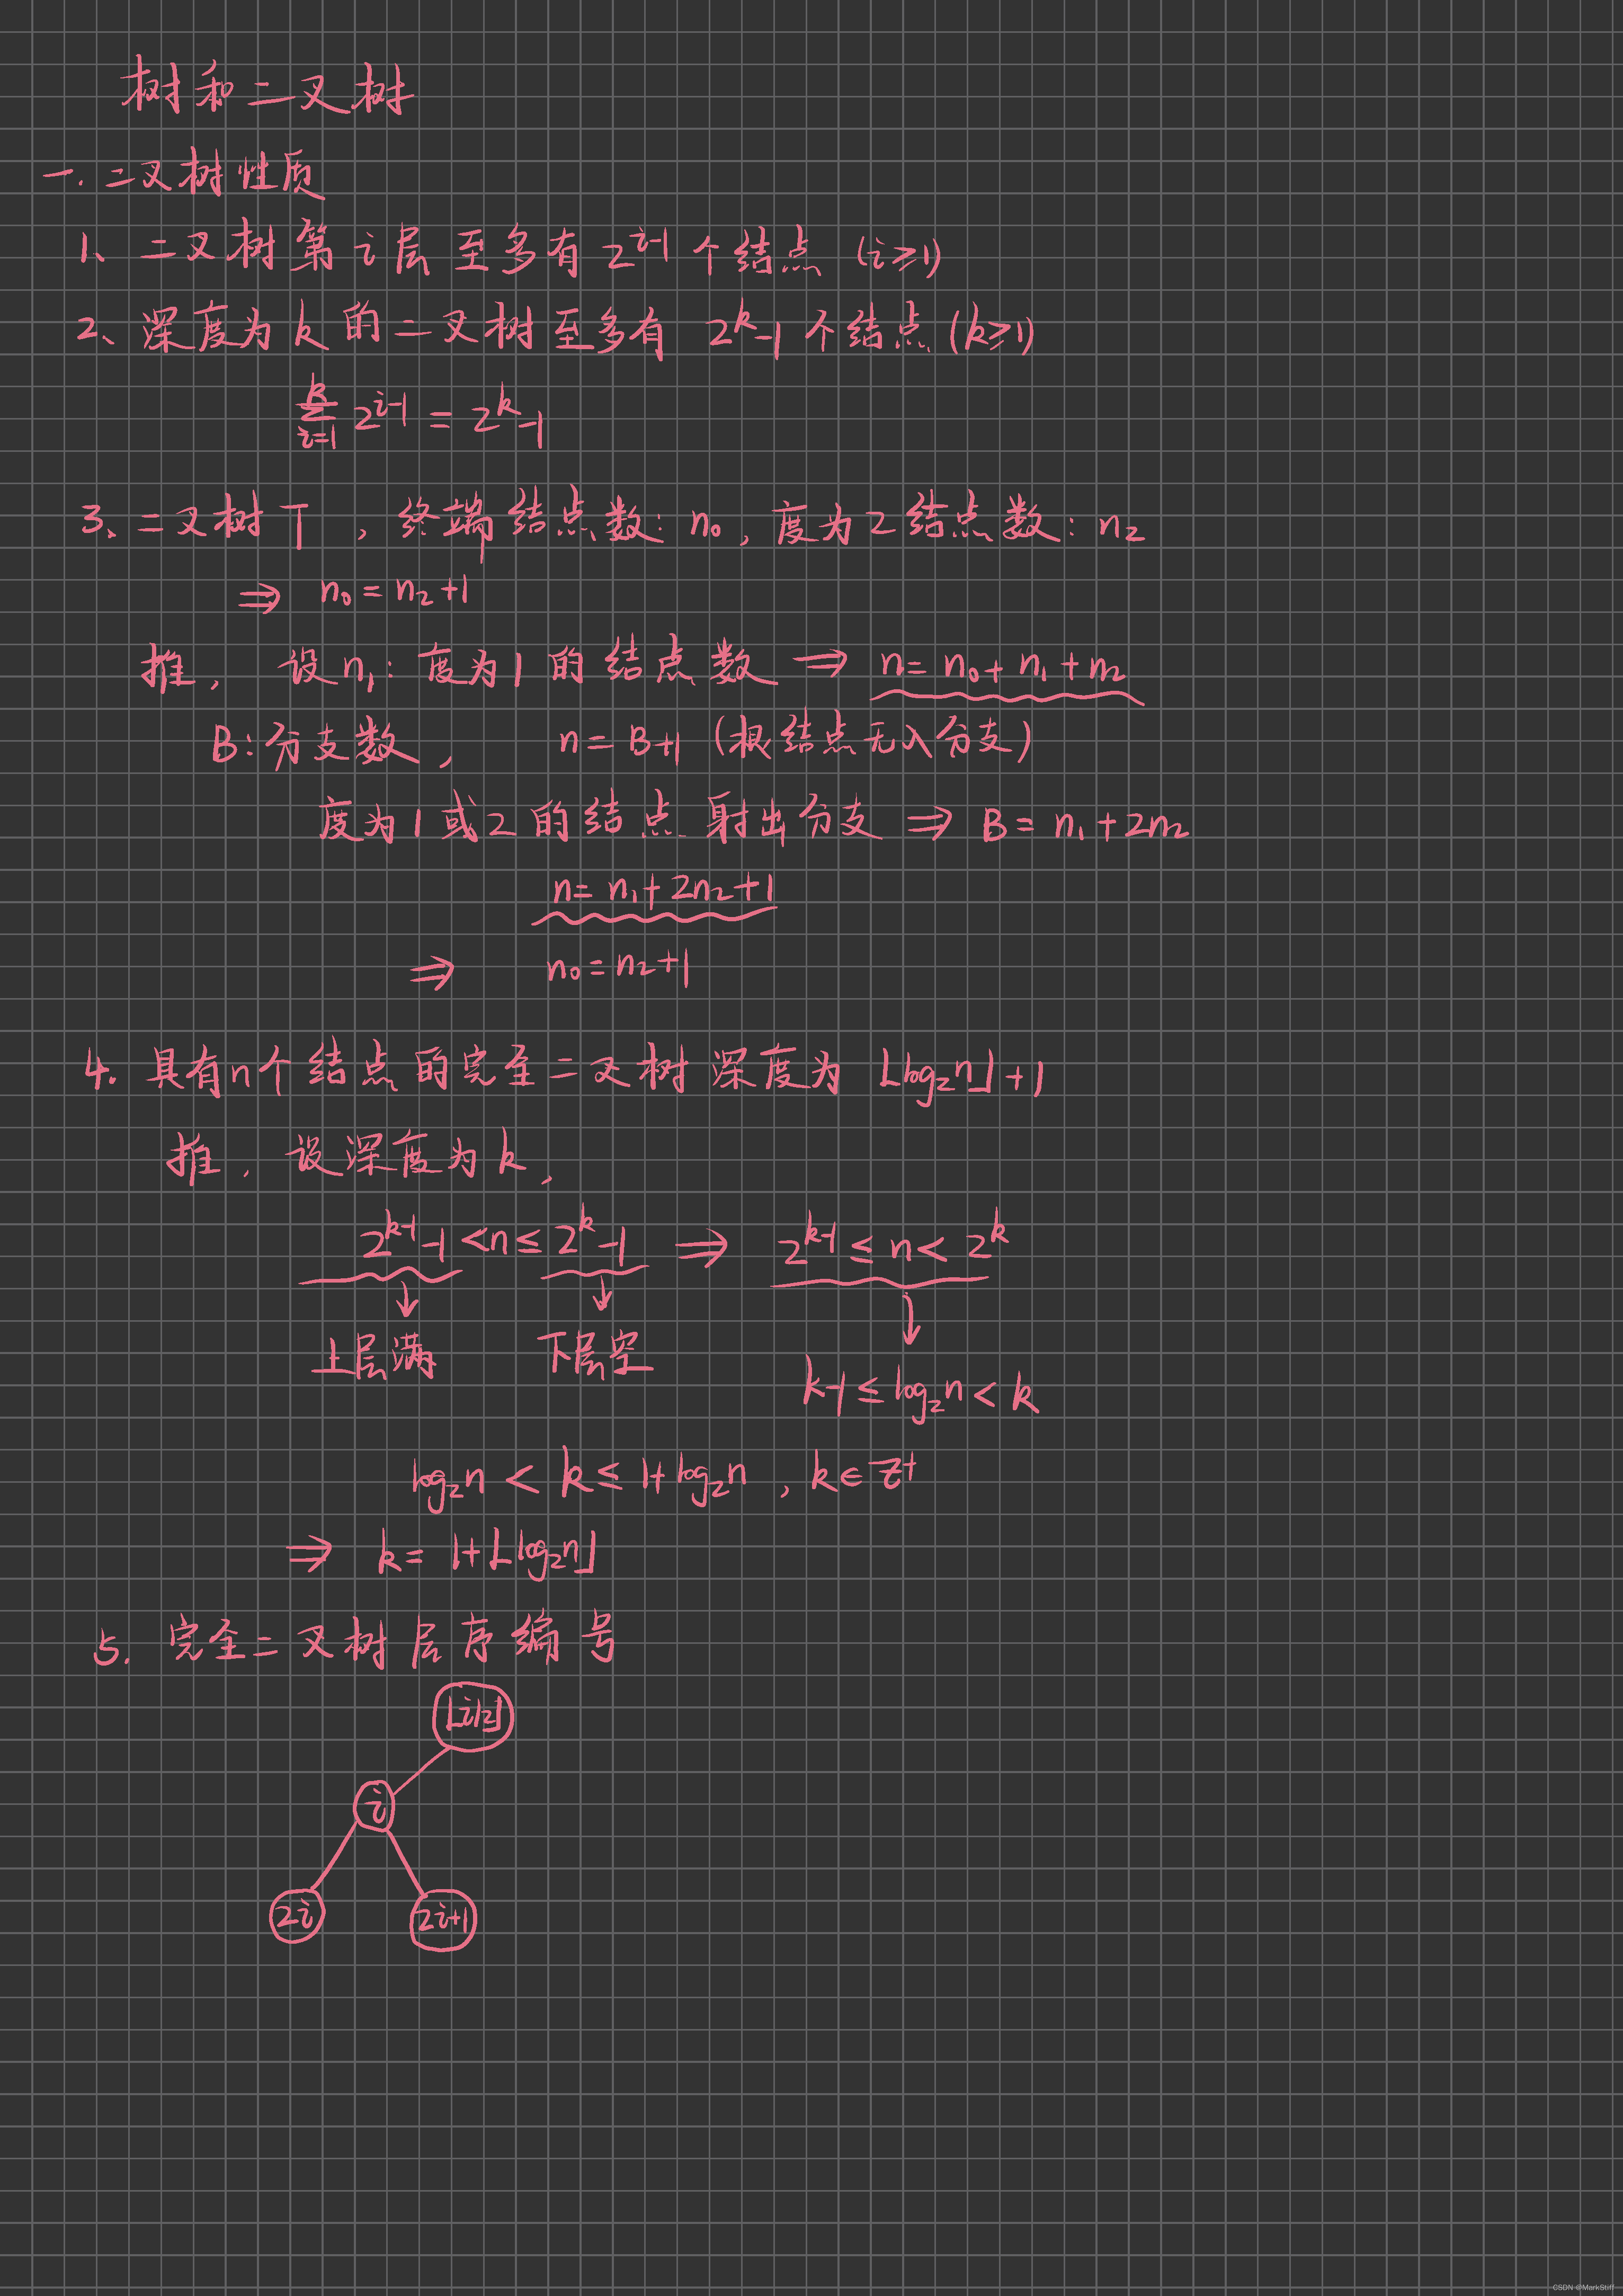 树和二叉树
一.二叉树性质
1、二叉树第i层至多有 2^{i-1} 个结点 (i≥1)
2、深度为k的二叉树至多有 2^k-1 个结点 (k≥1)
\sum_{i=1}^{k} 2^{i-1} = 2^k-1
3、二叉树T,终端结点数: n₀, 度为2结点数: n₂
⇒ n₀=n₂+1
推, 设n₁: 度为1的结点数 ⇒ n=n₀+n₁+n₂
B:分支数, n=B+1 (根结点无入分支)
度为1或2的结点射出分支 ⇒ B=n₁+2n₂
n=n₁+2n₂+1
⇒ n₀=n₂+1
4. 具有n个结点的完全二叉树深度为 ⌊log₂n⌋+1
推, 设深度为k,
2^{k-1}-1<n≤2^k-1 ⇒ 2^{k-1}≤n<2^k
↓ ↓ ↓
上层满 下层空
k-1≤log₂n<k
log₂n<k≤1+log₂n , k∈Z⁺
⇒ k=1+⌊log₂n⌋
5. 完全二叉树层序编号
⌊i/2⌋
i
2i 2i+1
CSDN @MarkStiff